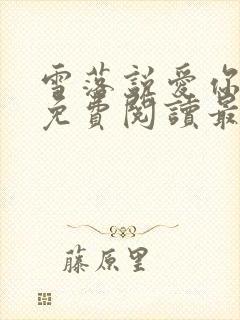 雪落說愛你
免費閱讀最
藤原里